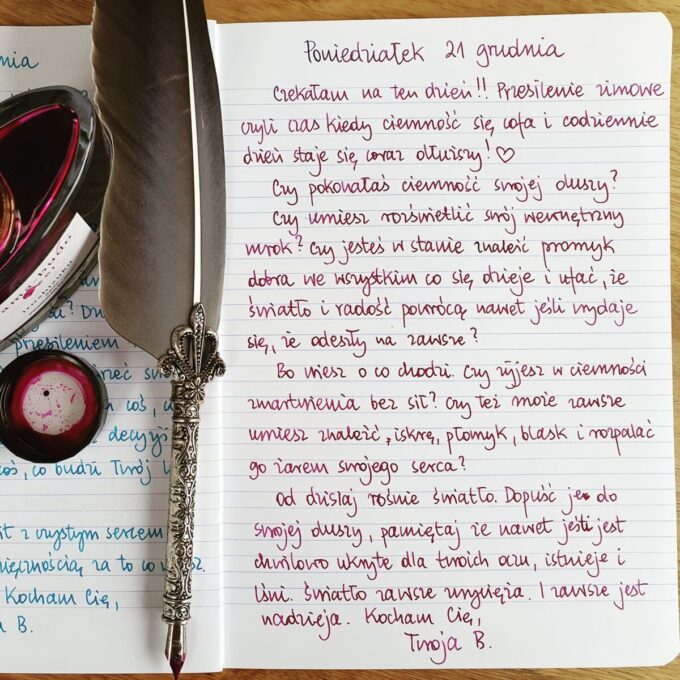 nia
Poniedziałek 21 grudnia
Czekałam na ten dzień!! Przesilenie zimowe
czyli czas kiedy ciemność się cofa i codziennie
dzień staje się coraz dłuższy! ♡
Czy pokonałaś ciemność swojej duszy?
Czy umiesz rozświetlić swój wewnętrzny
mrok? Czy jesteś w stanie znaleźć promyk
dobra we wszystkim co się dzieje i ufać, że
światło i radość powrócą nawet jeśli wydaje
się, że odeszły na zawsze?
Bo wiesz o co chodzi. Czy żyjesz w ciemności
zmartwienia bez sił? Czy też może zawsze
umiesz znaleźć, iskrę, płomyk, blask i rozpalać
go żarem swojego serca?
Od dzisiaj rośnie światło. Dopuść je do
swojej duszy, pamiętaj że nawet jeśli jest
chwilowo ukryte dla twoich oczu, istnieje i
lśni. Światło zawsze zwycięża. I zawsze jest
nadzieja. Kocham Cię,
Twoja B.
przesileniem
coś, co budzi Twój
z czystym sercem
za to co
Kocham Cię,
B.